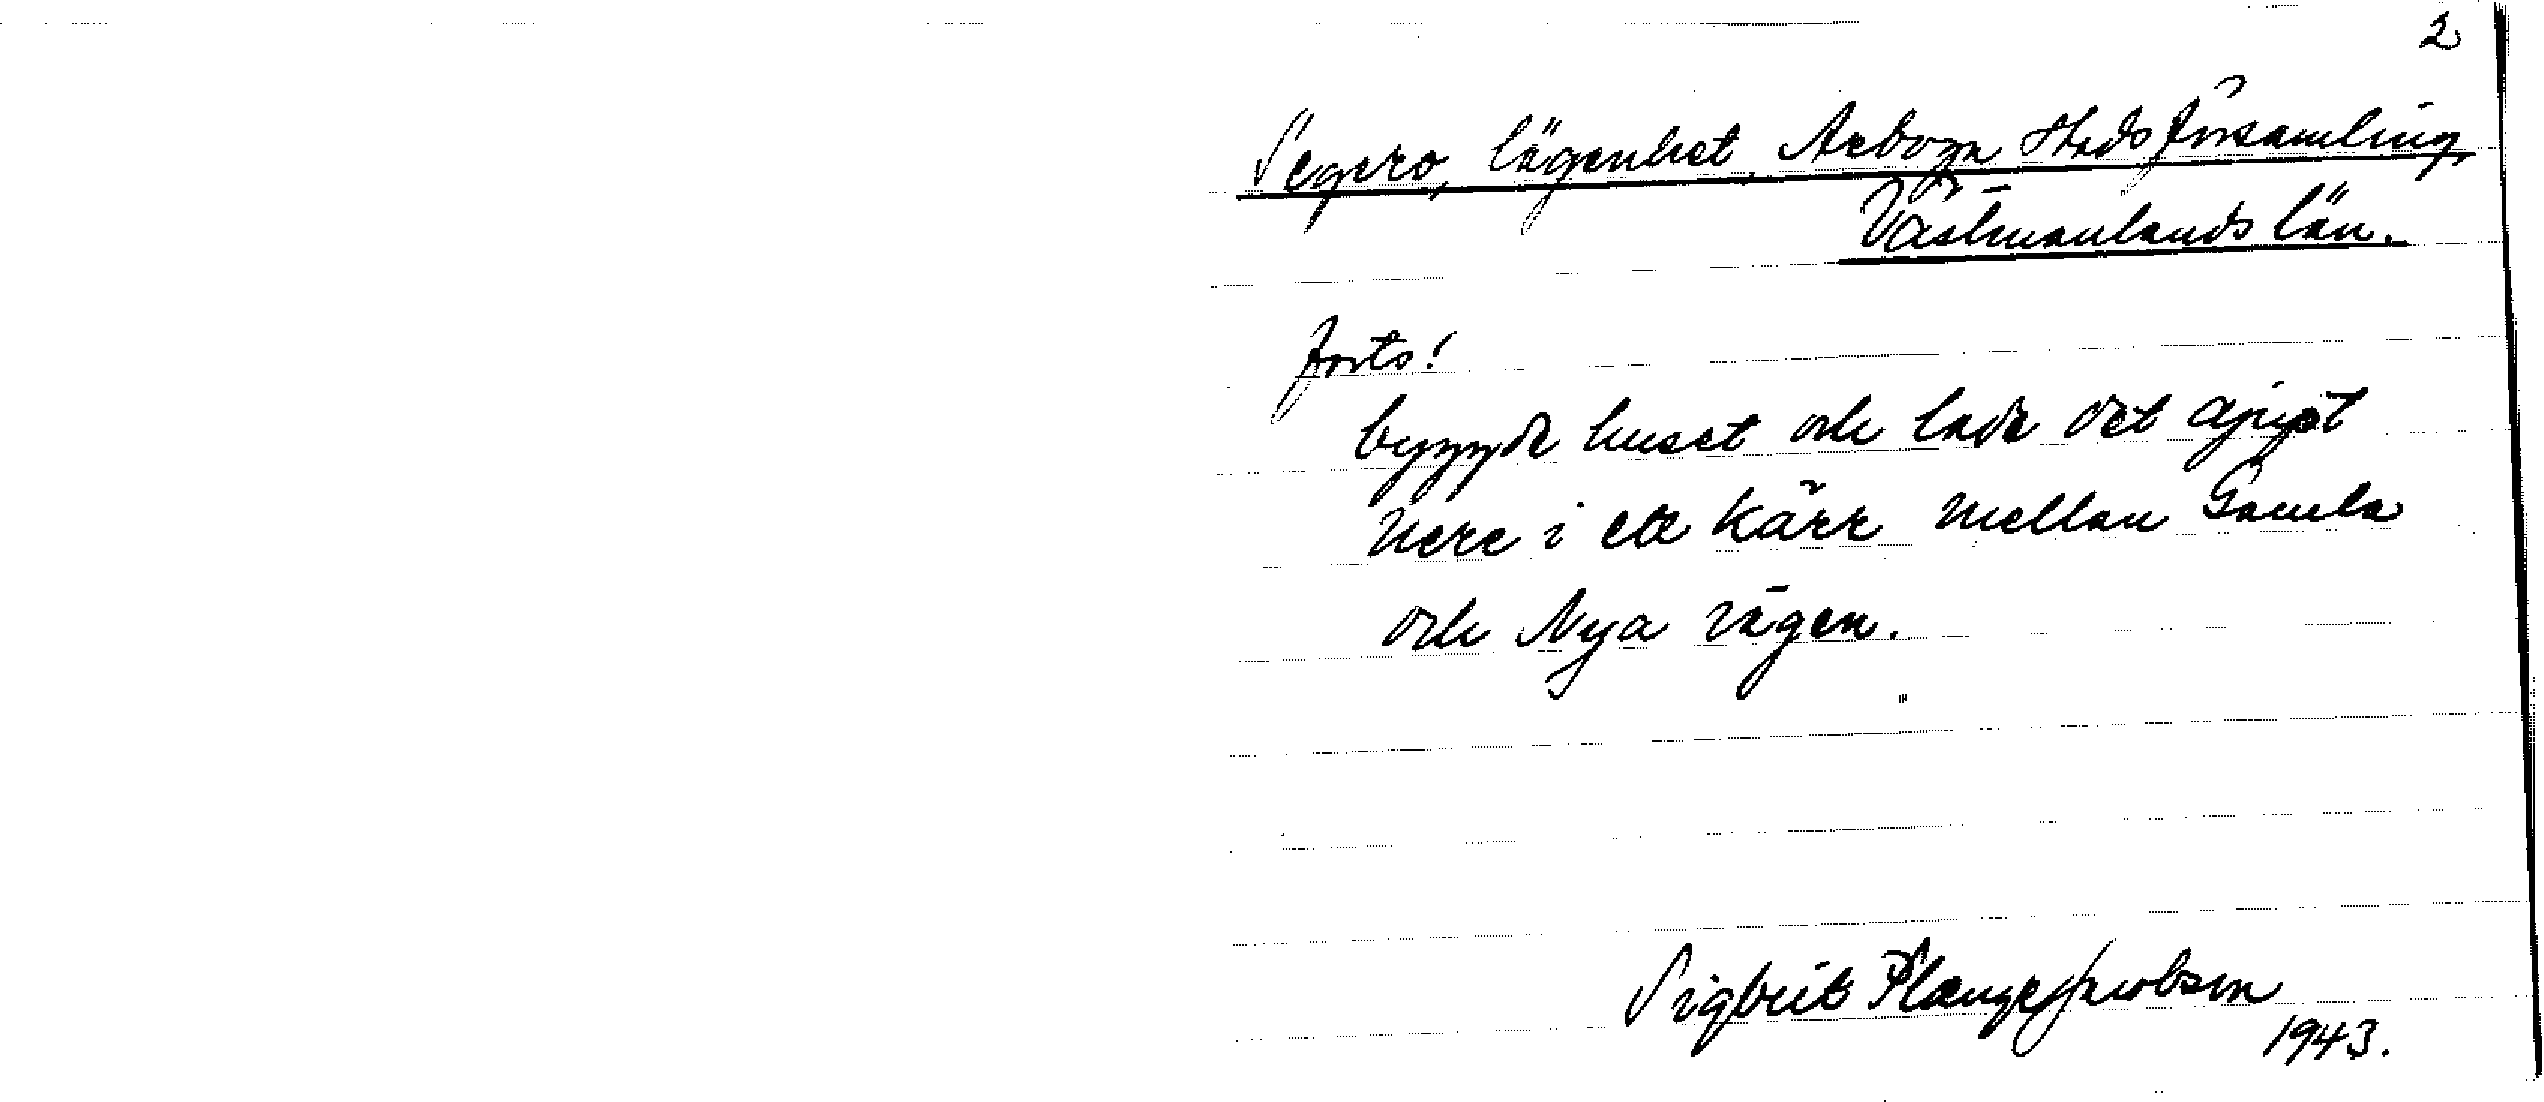 2
Segero, lägenhet, Arboga Stadsförsamling,
Västmanlands län.
forts!
byggde huset och lade det djupt
nere i ett Kärr mellan Gamla
och Nya vägen.
Sigbrit Plænge Jacobson
1943.